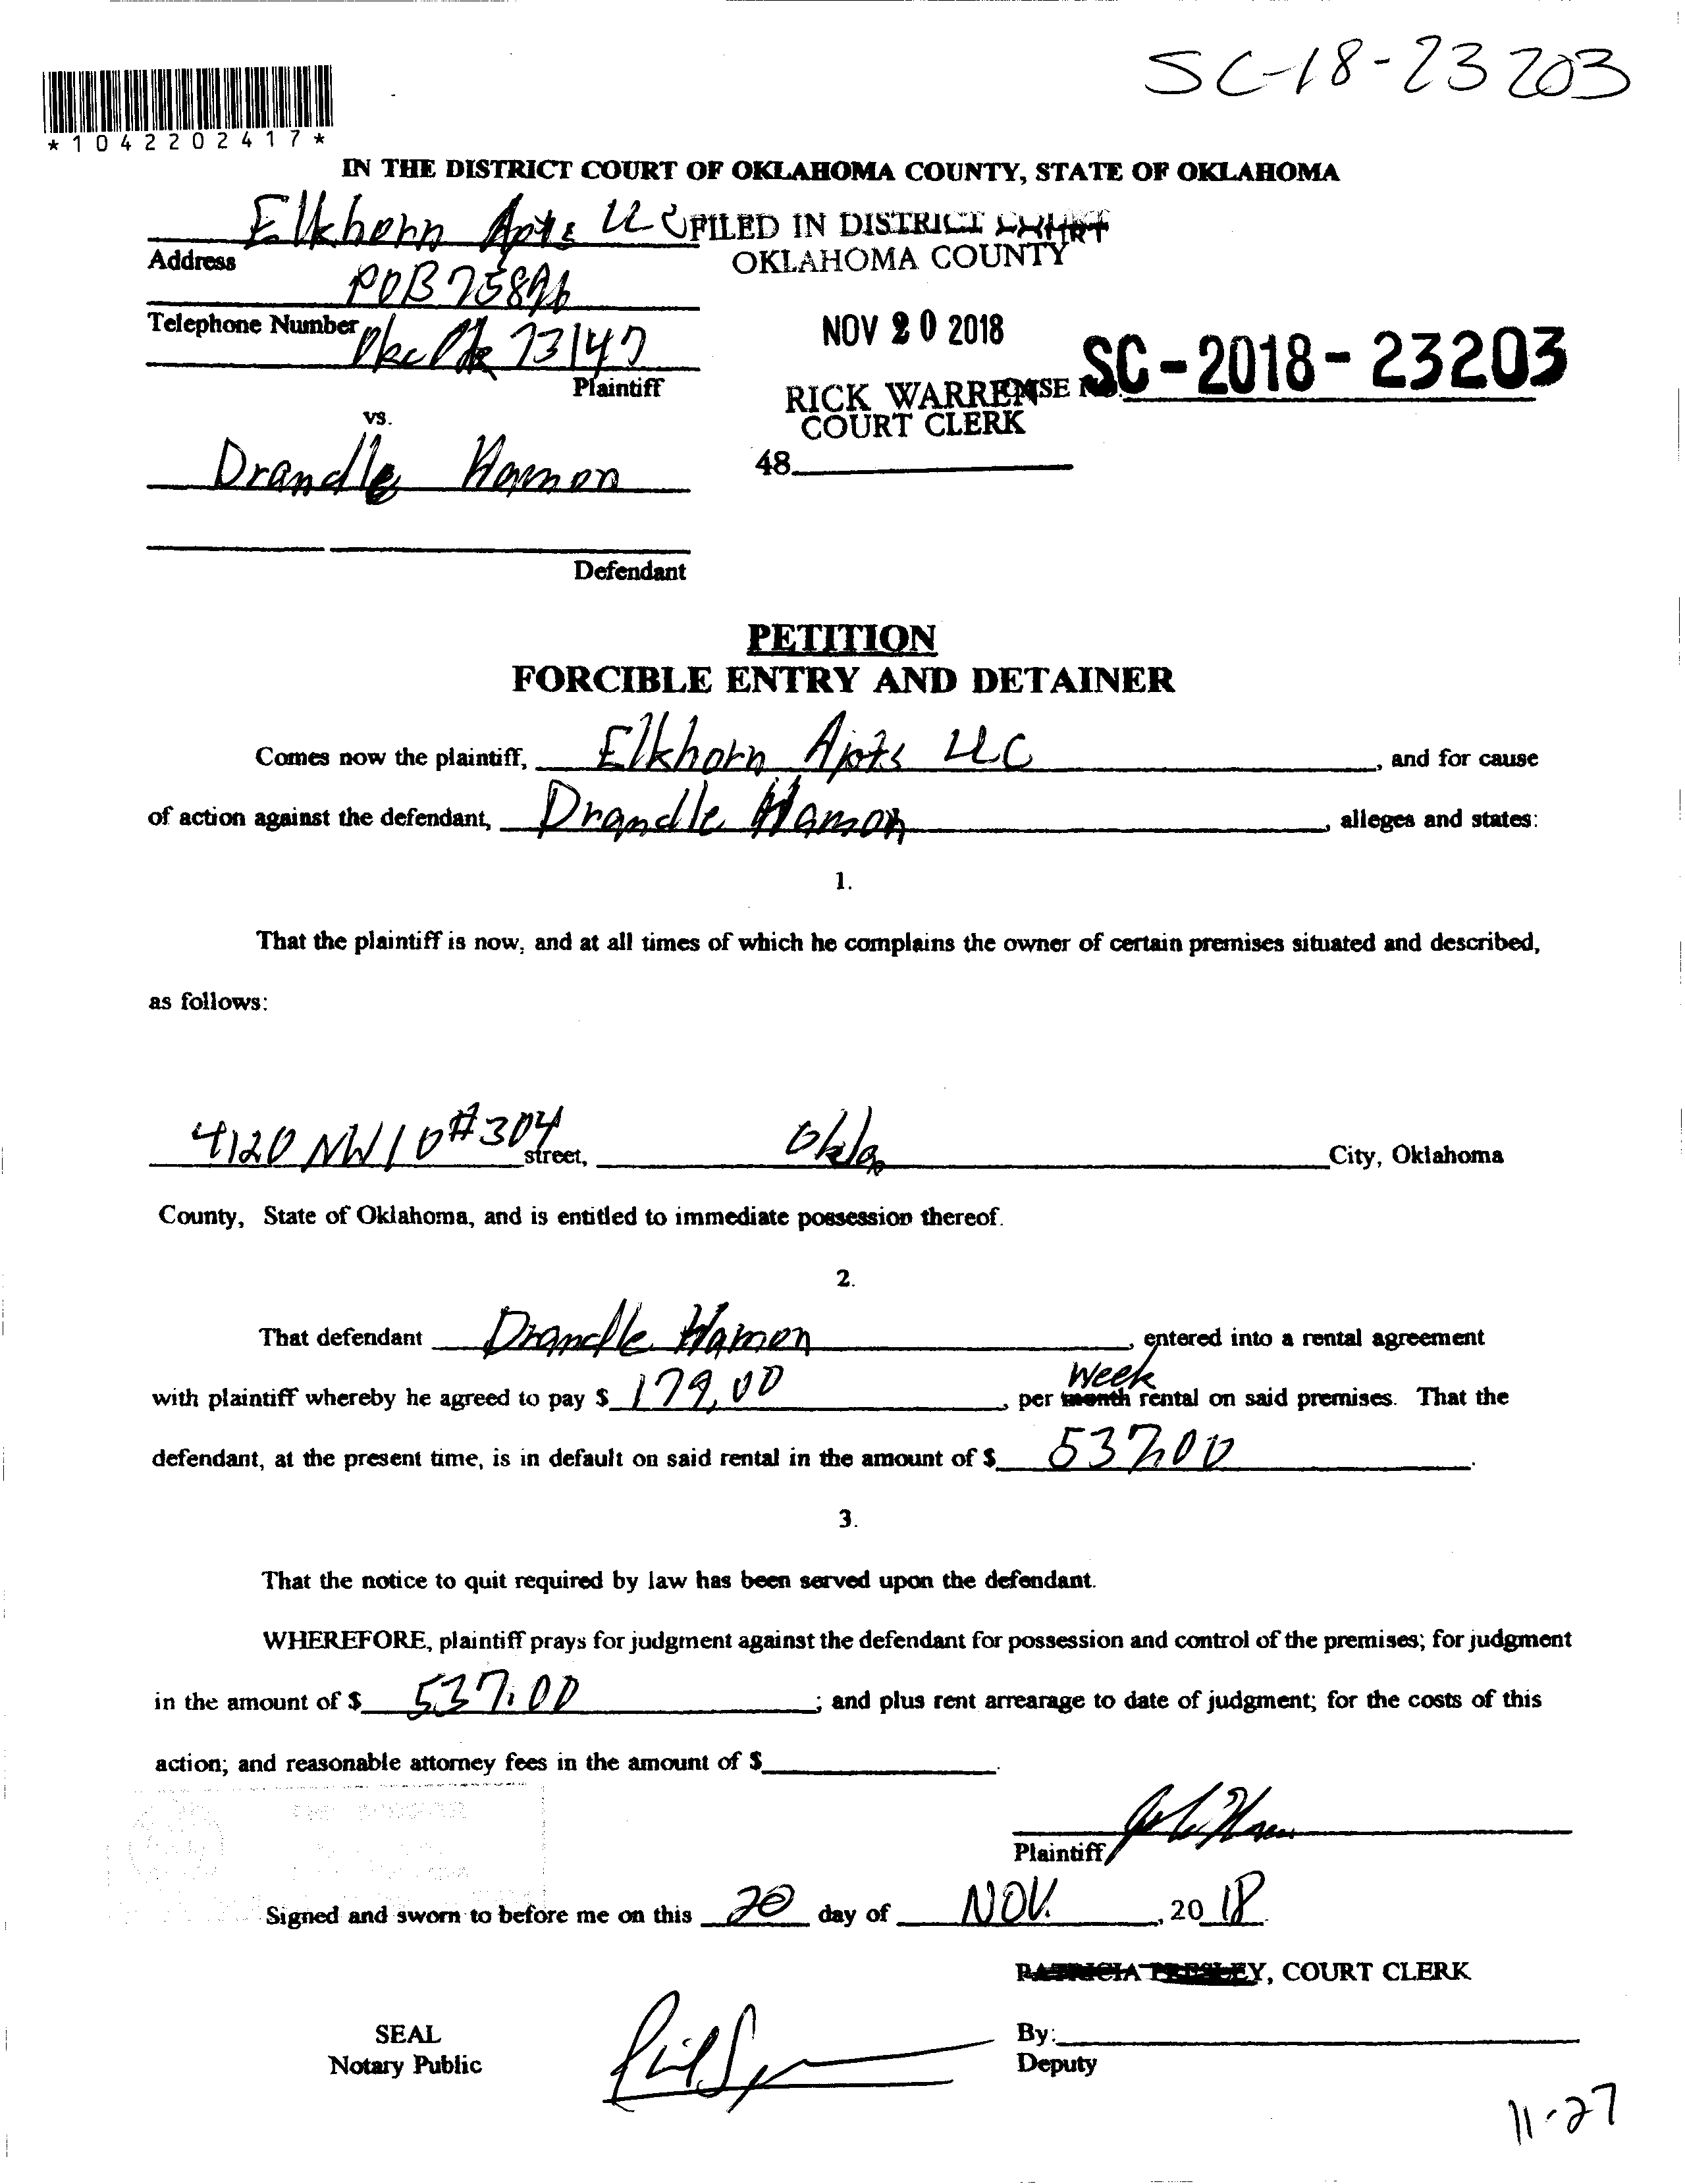 SC-18-23203
*1042202417*
IN THE DISTRICT COURT OF OKLAHOMA COUNTY, STATE OF OKLAHOMA
Elkhorn Apts LLC
FILED IN DISTRICT COURT
OKLAHOMA COUNTY
Address
POB 75896
Telephone Number
Okc Ok 73147
NOV 20 2018
Plaintiff
RICK WARREN
COURT CLERK
SC-2018-23203
vs.
48
Drandle Hamon
Defendant
PETITION
FORCIBLE ENTRY AND DETAINER
Comes now the plaintiff, Elkhorn Apts LLC, and for cause
of action against the defendant, Drandle Hamon, alleges and states:
1.
That the plaintiff is now, and at all times of which he complains the owner of certain premises situated and described,
as follows:
4120 NW 10 #304 street, Okla City, Oklahoma
County, State of Oklahoma, and is entitled to immediate possession thereof.
2.
That defendant Drandle Hamon, entered into a rental agreement
Week
with plaintiff whereby he agreed to pay $ 179.00, per month rental on said premises. That the
defendant, at the present time, is in default on said rental in the amount of $ 537.00.
3.
That the notice to quit required by law has been served upon the defendant.
WHEREFORE, plaintiff prays for judgment against the defendant for possession and control of the premises; for judgment
in the amount of $ 537.00; and plus rent arrearage to date of judgment; for the costs of this
action; and reasonable attorney fees in the amount of $
Plaintiff
Signed and sworn to before me on this 20 day of NOV., 2018.
PATRICIA PRESLEY, COURT CLERK
SEAL
Notary Public
By:
Deputy
11-27